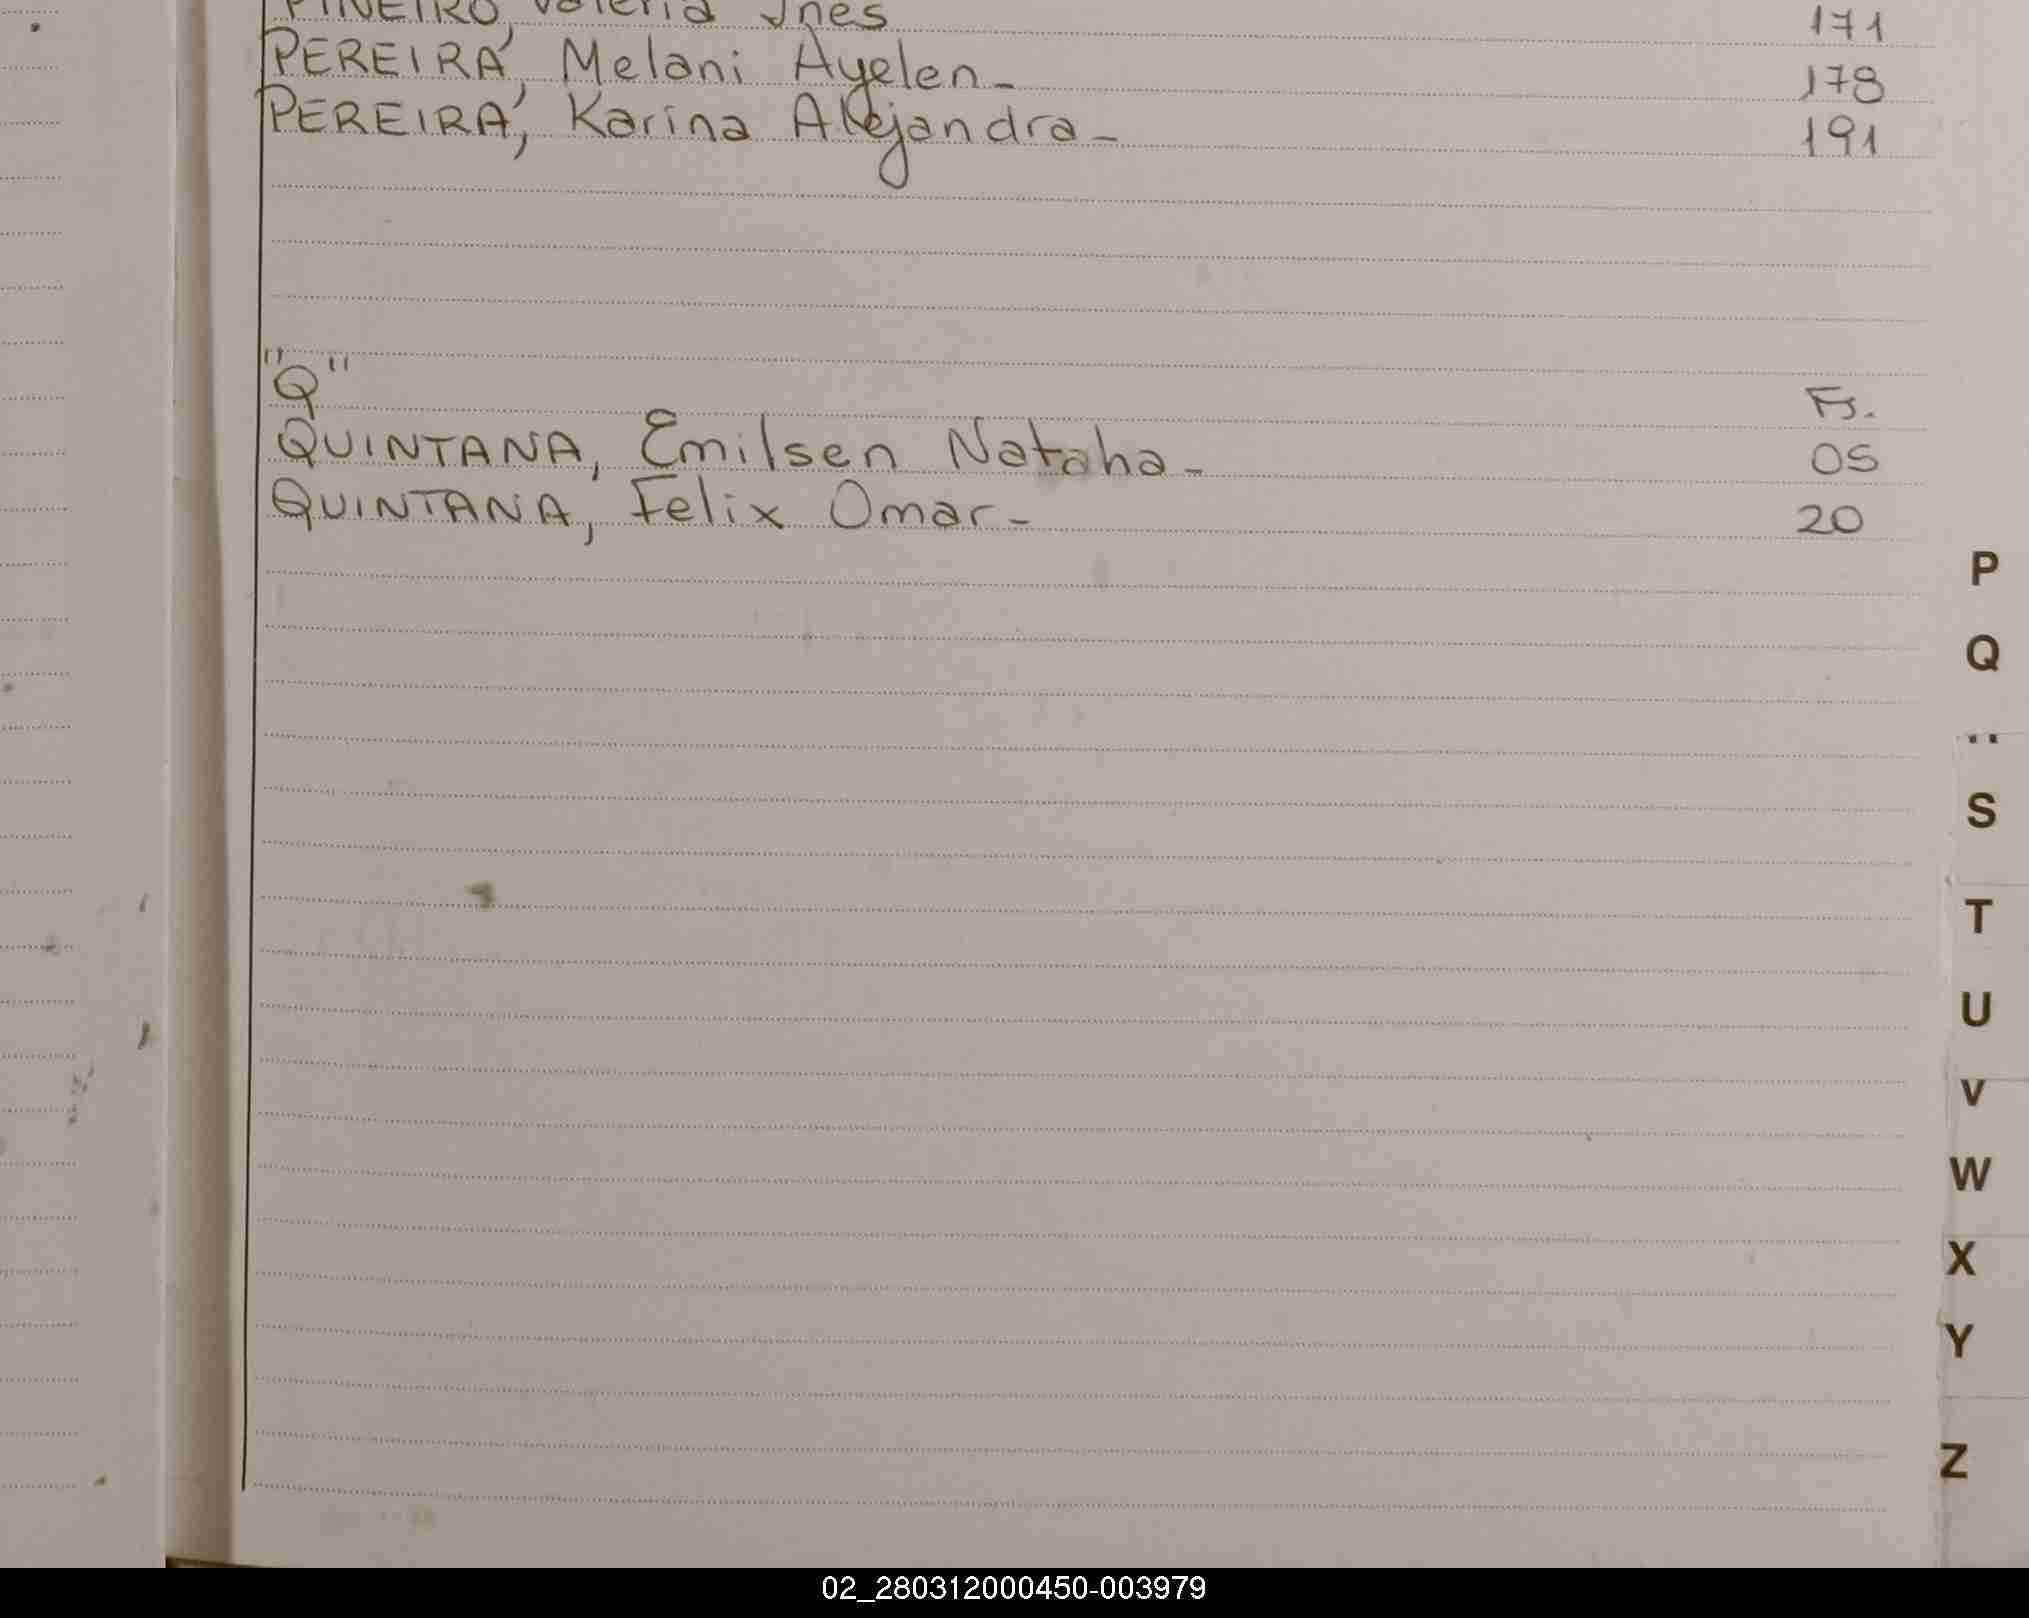 PIÑEIRO, Valeria Ines 171
PEREIRA, Melani Ayelen - 178
PEREIRA, Karina Alejandra - 191
"Q" Fs.
QUINTANA, Emilsen Nataha - 05
QUINTANA, Felix Omar - 20
P
Q
S
T
U
V
W
X
Y
Z
02_280312000450-003979